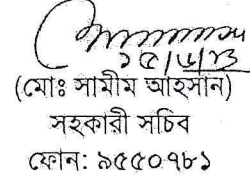 ১৫/৬/২৩
(মোঃ সামীম আহসান)
সহকারী সচিব
ফোন: ৯৫৫০৭৮১